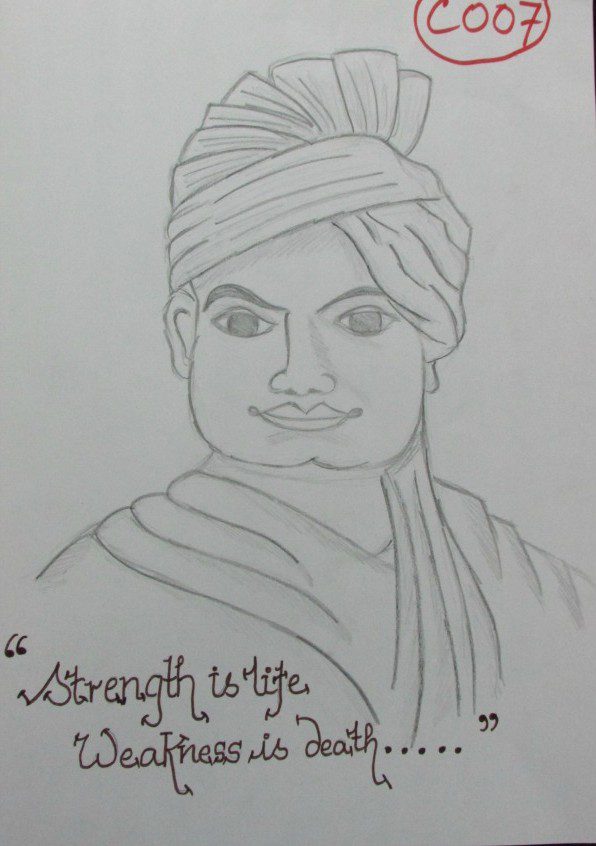 C007
“Strength is life
Weakness is death.....”